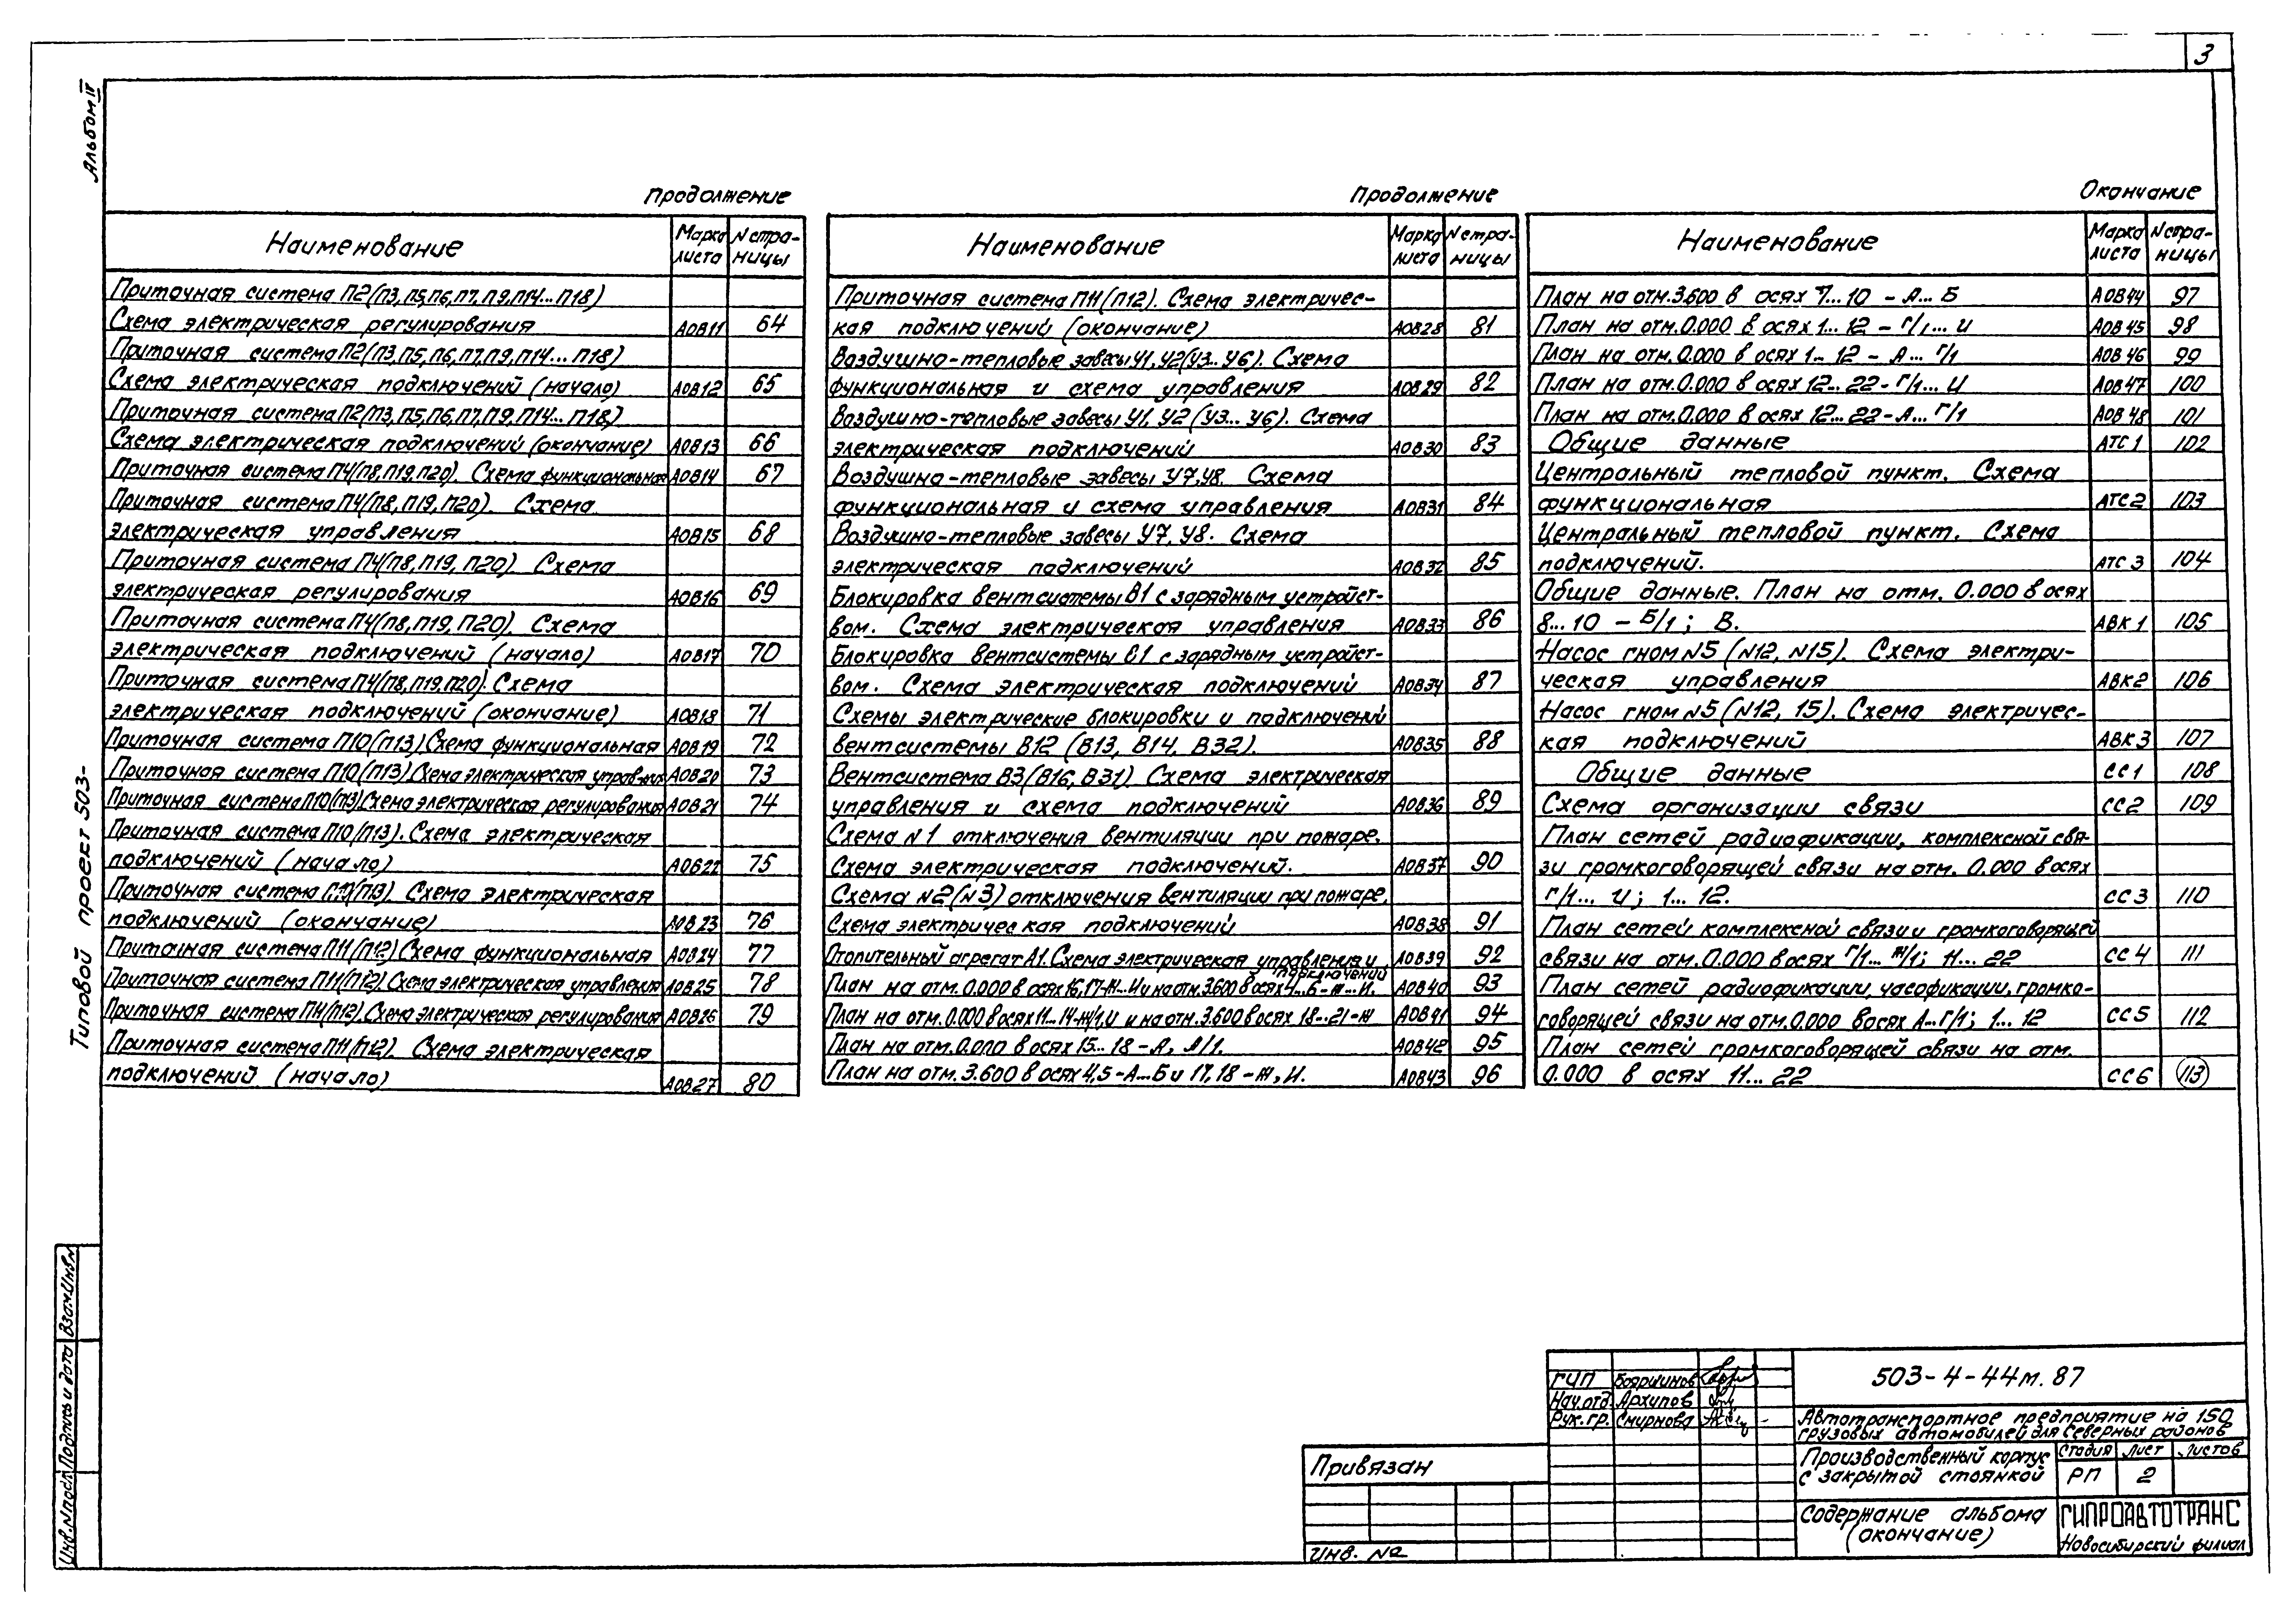 3
Альбом IV
Типовой проект 503-
Продолжение
Наименование Марка листа N страницы
Приточная система П2(П3,П5,П6,П7,П9,П14...П18)
Схема электрическая регулирования АОВ11 64
Приточная система П2(П3,П5,П6,П7,П9,П14...П18)
Схема электрическая подключений (начало) АОВ12 65
Приточная система П2(П3,П5,П6,П7,П9,П14...П18)
Схема электрическая подключений (окончание) АОВ13 66
Приточная система П4(П8,П19,П20). Схема функциональная АОВ14 67
Приточная система П4(П8,П19,П20). Схема
электрическая управления АОВ15 68
Приточная система П4(П8,П19,П20). Схема
электрическая регулирования АОВ16 69
Приточная система П4(П8,П19,П20). Схема
электрическая подключений (начало) АОВ17 70
Приточная система П4(П8,П19,П20). Схема
электрическая подключений (окончание) АОВ18 71
Приточная система П10(П13) Схема функциональная АОВ19 72
Приточная система П10(П13) Схема электрическая управ-ния АОВ20 73
Приточная система П10(П13) Схема электрическая регулирования АОВ21 74
Приточная система П10(П13). Схема электрическая
подключений (начало) АОВ22 75
Приточная система П10(П13). Схема электрическая
подключений (окончание) АОВ23 76
Приточная система П11(П12) Схема функциональная АОВ24 77
Приточная система П11(П12). Схема электрическая управления АОВ25 78
Приточная система П11(П12). Схема электрическая регулирования АОВ26 79
Приточная система П11(П12). Схема электрическая
подключений (начало) АОВ27 80
Продолжение
Наименование Марка листа N страницы
Приточная система П11(П12). Схема электричес-
кая подключений (окончание) АОВ28 81
Воздушно-тепловые завесы У1, У2(У3...У6). Схема
функциональная и схема управления АОВ29 82
Воздушно-тепловые завесы У1, У2 (У3...У6). Схема
электрическая подключений АОВ30 83
Воздушно-тепловые завесы У7,У8. Схема
функциональная и схема управления АОВ31 84
Воздушно-тепловые завесы У7, У8. Схема
электрическая подключений АОВ32 85
Блокировка вентсистемы В1 с зарядным устройст-
вом. Схема электрическая управления АОВ33 86
Блокировка вентсистемы В1 с зарядным устройст-
вом. Схема электрическая подключений АОВ34 87
Схемы электрические блокировки и подключений
вентсистемы В12 (В13, В14, В32). АОВ35 88
Вентсистема В3(В16, В31) Схема электрическая
управления и схема подключений АОВ36 89
Схема N1 отключения вентиляции при пожаре.
Схема электрическая подключений. АОВ37 90
Схема N2(N3) отключения вентиляции при пожаре.
Схема электрическая подключений АОВ38 91
Отопительный агрегат А1. Схема электрическая управления и подключений АОВ39 92
План на отм. 0.000 в осях 16,17-Ж...И и на отм. 3.600 в осях 4...6-Ж...И. АОВ40 93
План на отм. 0.000 в осях 11...14-Ж/1,И и на отм. 3.600 в осях 18...21-Ж АОВ41 94
План на отм. 0.000 в осях 15...18-А, А/1. АОВ42 95
План на отм. 3.600 в осях 4,5-А...Б и 17,18-Ж, И. АОВ43 96
Окончание
Наименование Марка листа N страницы
План на отм. 3.600 в осях 7...10 - А...Б АОВ44 97
План на отм. 0.000 в осях 1...12 - Г/1...И АОВ45 98
План на отм. 0.000 в осях 1...12 - А...Г/1 АОВ46 99
План на отм. 0.000 в осях 12...22-Г/1...И АОВ47 100
План на отм. 0.000 в осях 12...22-А...Г/1 АОВ48 101
Общие данные АТС1 102
Центральный тепловой пункт. Схема
функциональная АТС2 103
Центральный тепловой пункт. Схема
подключений. АТС3 104
Общие данные. План на отм. 0.000 в осях
8...10 - Б/1; В. АВК1 105
Насос гном N5 (N12, N15). Схема электри-
ческая управления АВК2 106
Насос гном N5 (N12, 15). Схема электричес-
кая подключений АВК3 107
Общие данные СС1 108
Схема организации связи СС2 109
План сетей радиофикации, комплексной свя-
зи громкоговорящей связи на отм. 0.000 в осях
Г/1...И; 1...12. СС3 110
План сетей комплексной связи и громкоговорящей
связи на отм. 0.000 в осях Г/1...Ж/1; 11...22 СС4 111
План сетей радиофикации, часофикации, громко-
говорящей связи на отм. 0.000 в осях А...Г/1; 1...12 СС5 112
План сетей громкоговорящей связи на отм.
0.000 в осях 11...22 СС6 113
Взам.инв.N
Подпись и дата
Инв.Nподл.
ГИП Бояршинов
Нач.отд. Архипов
Рук.гр. Смирнова
Привязан
Инв. №
503-4-44м.87
Автотранспортное предприятие на 150
грузовых автомобилей для северных районов
Производственный корпус
с закрытой стоянкой
Стадия Лист Листов
РП 2
Содержание альбома
(окончание)
ГИПРОАВТОТРАНС
Новосибирский филиал